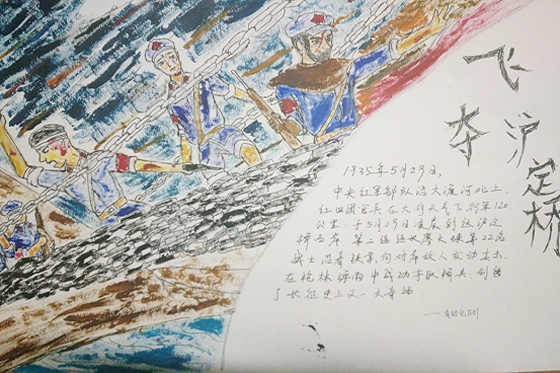 飞夺沪定桥
1935年5月29日,
中央红军部队沿大渡河北上
红四团官兵在大雨天气下行军120
公里,于5月29日凌晨到达沪定
桥西岸 第二连连长廖大珠率22名
战士沿着铁索向对岸敌人发动攻击
在枪林弹雨中成功夺取桥头,创造
了长征史上又一大奇迹
——自动化